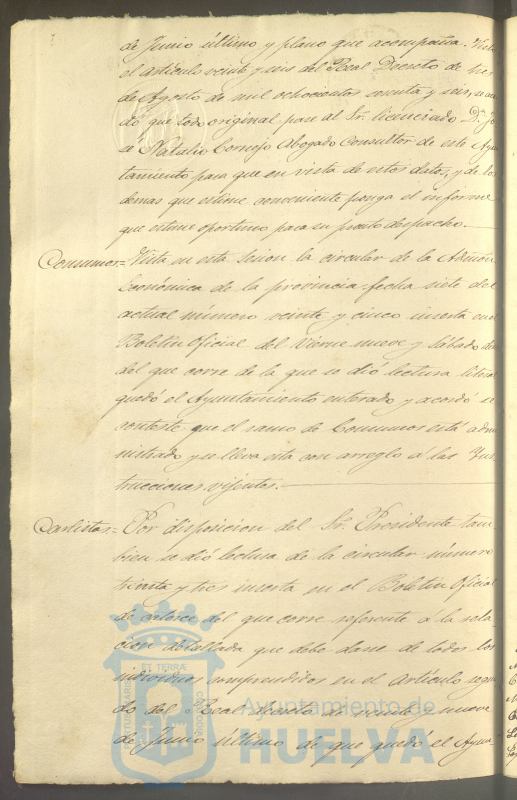 de Junio último y plano que acompaña. Vista
el artículo veinte y seis del Real Decreto de tres
de Agosto de mil ochocientos sesenta y seis, se acor
dó que todo original pase al Sr. licenciado Dn. Jo
se Natalio Cornejo Abogado Consultor de este Ayun
tamiento para que en vista de estos datos, y de los
demas que estime conveniente ponga el informe
que estime oportuno para su pronto despacho.
Consumos= Vista en esta sesion la circular de la Admon
Económica de la provincia fecha siete del
actual número veinte y cinco inserta en el
Boletin Oficial del Viernes nueve y Sábado
del que corre de la que se dió lectura literal
quedó el Ayuntamiento enterado y acordó se
conteste que el ramo de Consumos está admi
nistrado y se lleva esta con arreglo á las Ins
trucciones vijentes.
Carlistas= Por disposicion del Sr. Presidente tam
bien se dió lectura de la circular número
treinta y tres inserta en el Boletin Oficial
de catorce del que corre referente á la rela
cion detallada que debe darse de todos los
individuos comprendidos en el Artículo segun
do del Real decreto de veinte y nueve
de Junio último de que quedó el Ayun
ET TERRAE
CUSTODIA
Ayuntamiento de
HUELVA